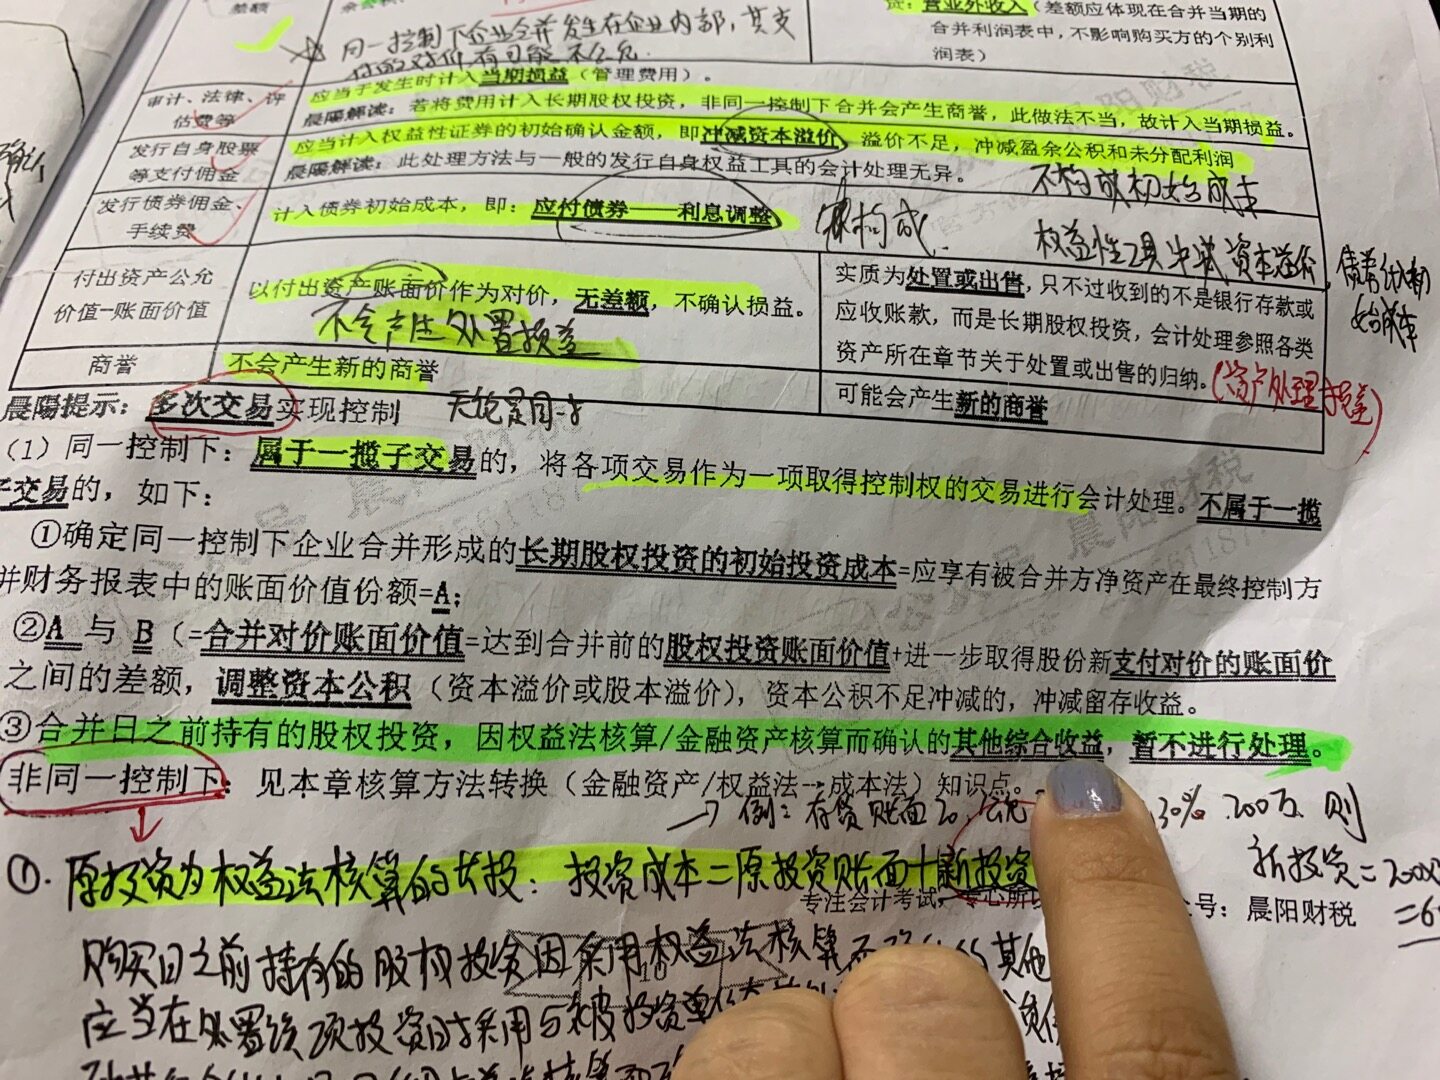 差额
贷：营业外收入（差额应体现在合并当期的
合并利润表中，不影响购买方的个别利
润表）
同一控制下企业合并发生在企业内部，其支
付的对价有可能不公允.
审计、法律、评
估费等
应当于发生时计入当期损益（管理费用）。
晨陽解读：若将费用计入长期股权投资，非同一控制下合并会产生商誉，此做法不当，故计入当期损益。
发行自身股票
等支付佣金
应当计入权益性证券的初始确认金额，即冲减资本溢价，溢价不足，冲减盈余公积和未分配利润
晨陽解读：此处理方法与一般的发行自身权益工具的会计处理无异。
不构成初始成本
发行债券佣金、
手续费
计入债券初始成本，即：应付债券——利息调整
构成.
权益性工具冲减资本溢价，债券计入初
始成本
付出资产公允
价值-账面价值
以付出资产账面价作为对价，无差额，不确认损益。
不会产生处置损益
实质为处置或出售，只不过收到的不是银行存款或
应收账款，而是长期股权投资，会计处理参照各类
资产所在章节关于处置或出售的归纳。
(资产处理损益)
商誉
不会产生新的商誉
可能会产生新的商誉
晨陽提示：多次交易实现控制
无论是同一与
（1）同一控制下：属于一揽子交易的，将各项交易作为一项取得控制权的交易进行会计处理。不属于一揽
子交易的，如下：
①确定同一控制下企业合并形成的长期股权投资的初始投资成本=应享有被合并方净资产在最终控制方
并财务报表中的账面价值份额=A；
②A 与 B（=合并对价账面价值=达到合并前的股权投资账面价值+进一步取得股份新支付对价的账面价
之间的差额，调整资本公积（资本溢价或股本溢价），资本公积不足冲减的，冲减留存收益。
③合并日之前持有的股权投资，因权益法核算/金融资产核算而确认的其他综合收益，暂不进行处理。
非同一控制下：见本章核算方法转换（金融资产/权益法→成本法）知识点。
→例：存货账面20，公允
30% 200万 则
新投资=200X
=6
①. 原投资为权益法核算的长投：投资成本=原投资账面+新投资
专注会计考试，专心所
号：晨阳财税
10
购买日之前持有的股权投资因采用权益法核算而确认的其他
应当在处置该项投资时采用与被投资单位